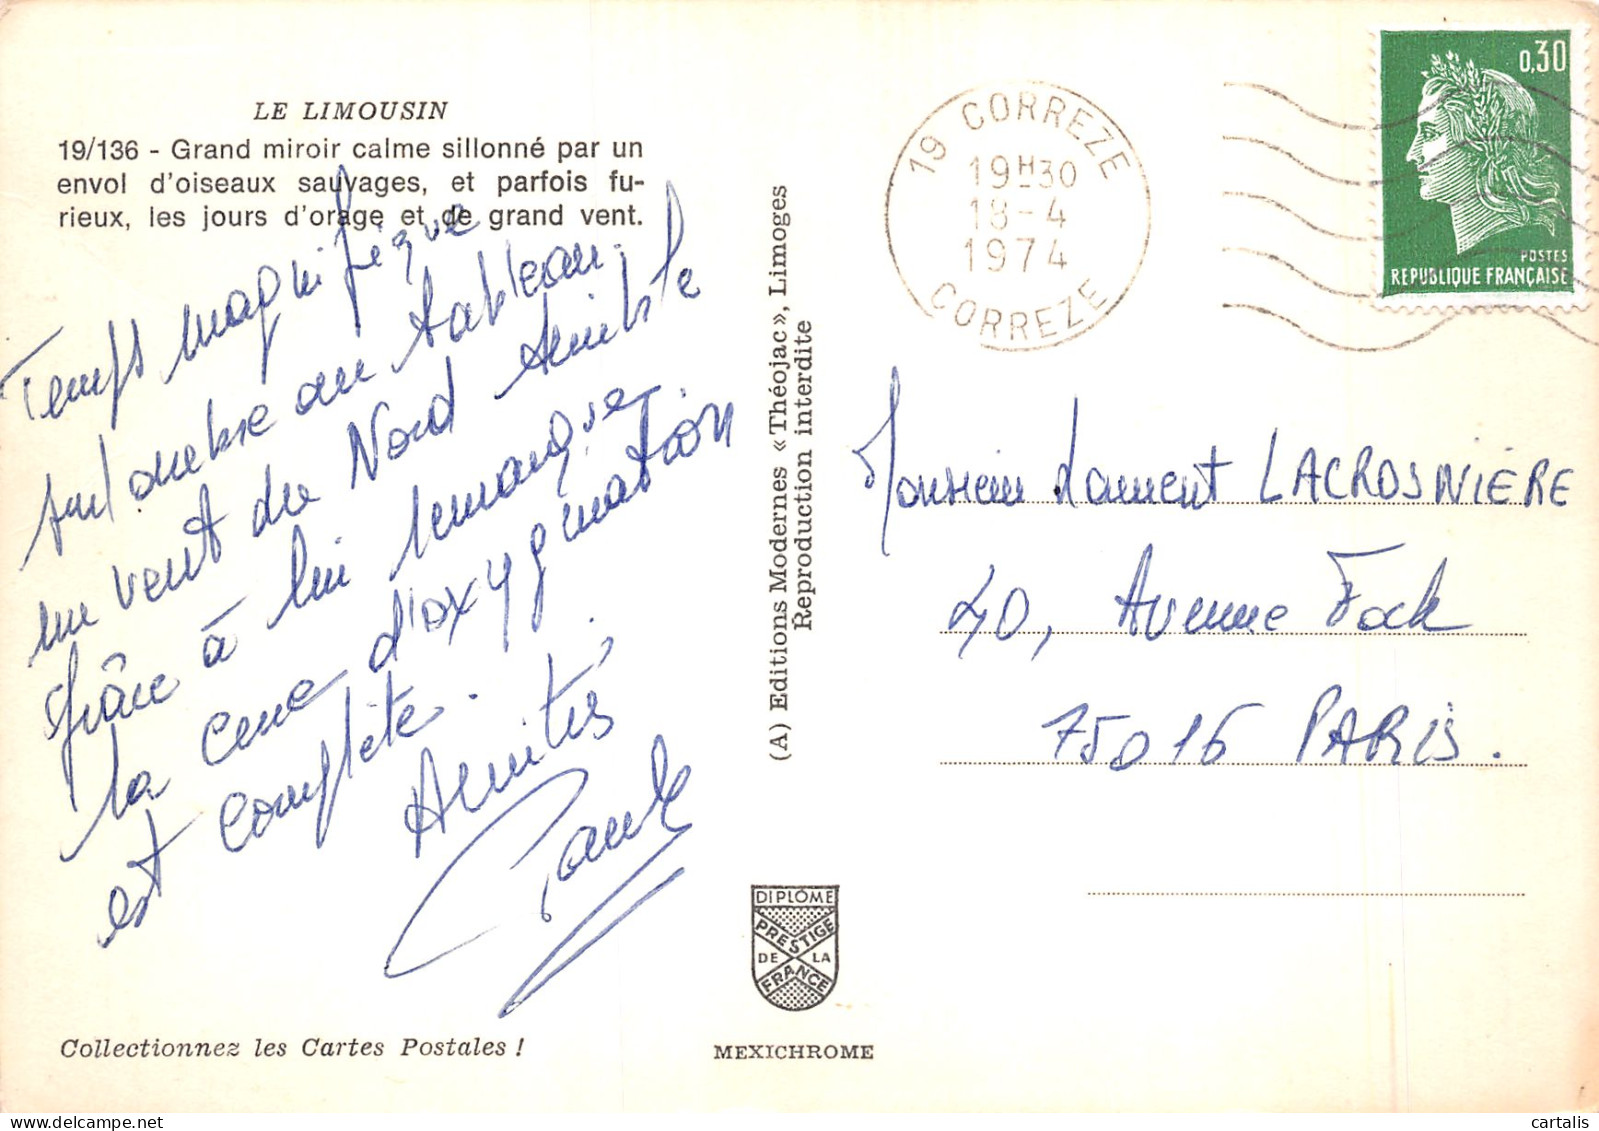 LE LIMOUSIN
19/136 - Grand miroir calme sillonné par un
envol d'oiseaux sauvages, et parfois fu-
rieux, les jours d'orage et de grand vent.
Temps magnifique
seul ombre au tableau.
un vent du Nord terrible
grâce à lui remarque
la cure d'oxygénation
est complète.
Amitiés
19 CORREZE
19H30
18-4
1974
CORREZE
0,30
POSTES
REPUBLIQUE FRANÇAISE
(A) Editions Modernes «Théojac», Limoges
Reproduction interdite
Monsieur Laurent LACROSNIÈRE
40, Avenue Foch
75016 PARIS.
DIPLÔME
PRESTIGE
DE LA
FRANCE
Collectionnez les Cartes Postales !
MEXICHROME
cartalis